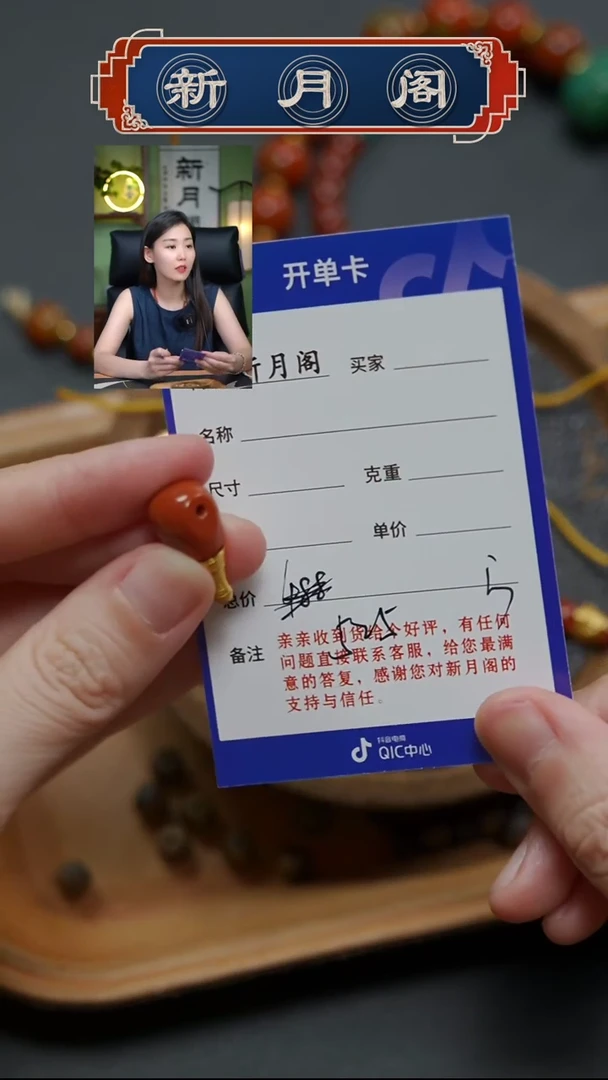 新月阁
新月
开单卡
新月阁 买家
名称
尺寸 克重
单价
总价
备注 亲亲收到货给个好评，有任何
问题直接联系客服，给您最满
意的答复，感谢您对新月阁的
支持与信任。
抖音电商
QIC中心